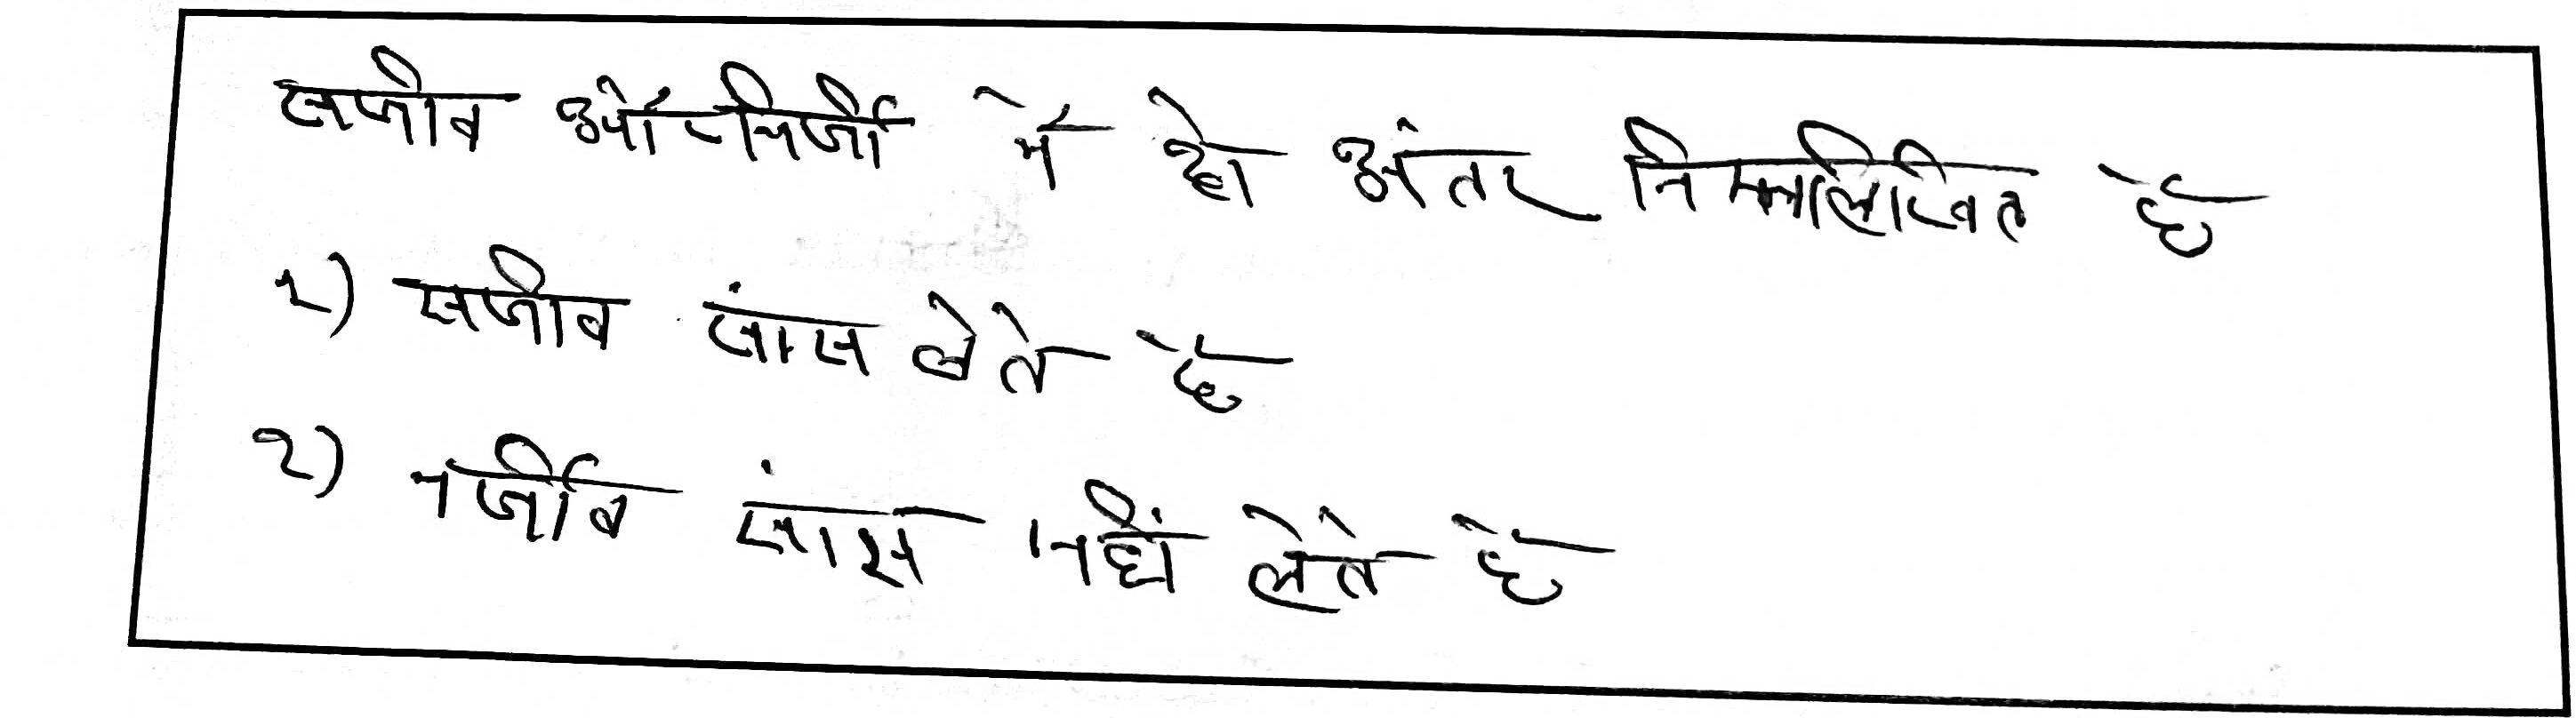 सजीव और निर्जी में दो अंतर निम्नलिखित है
१) सजीव सांस लेते है
२) नर्जीव सांस नहीं लेते है